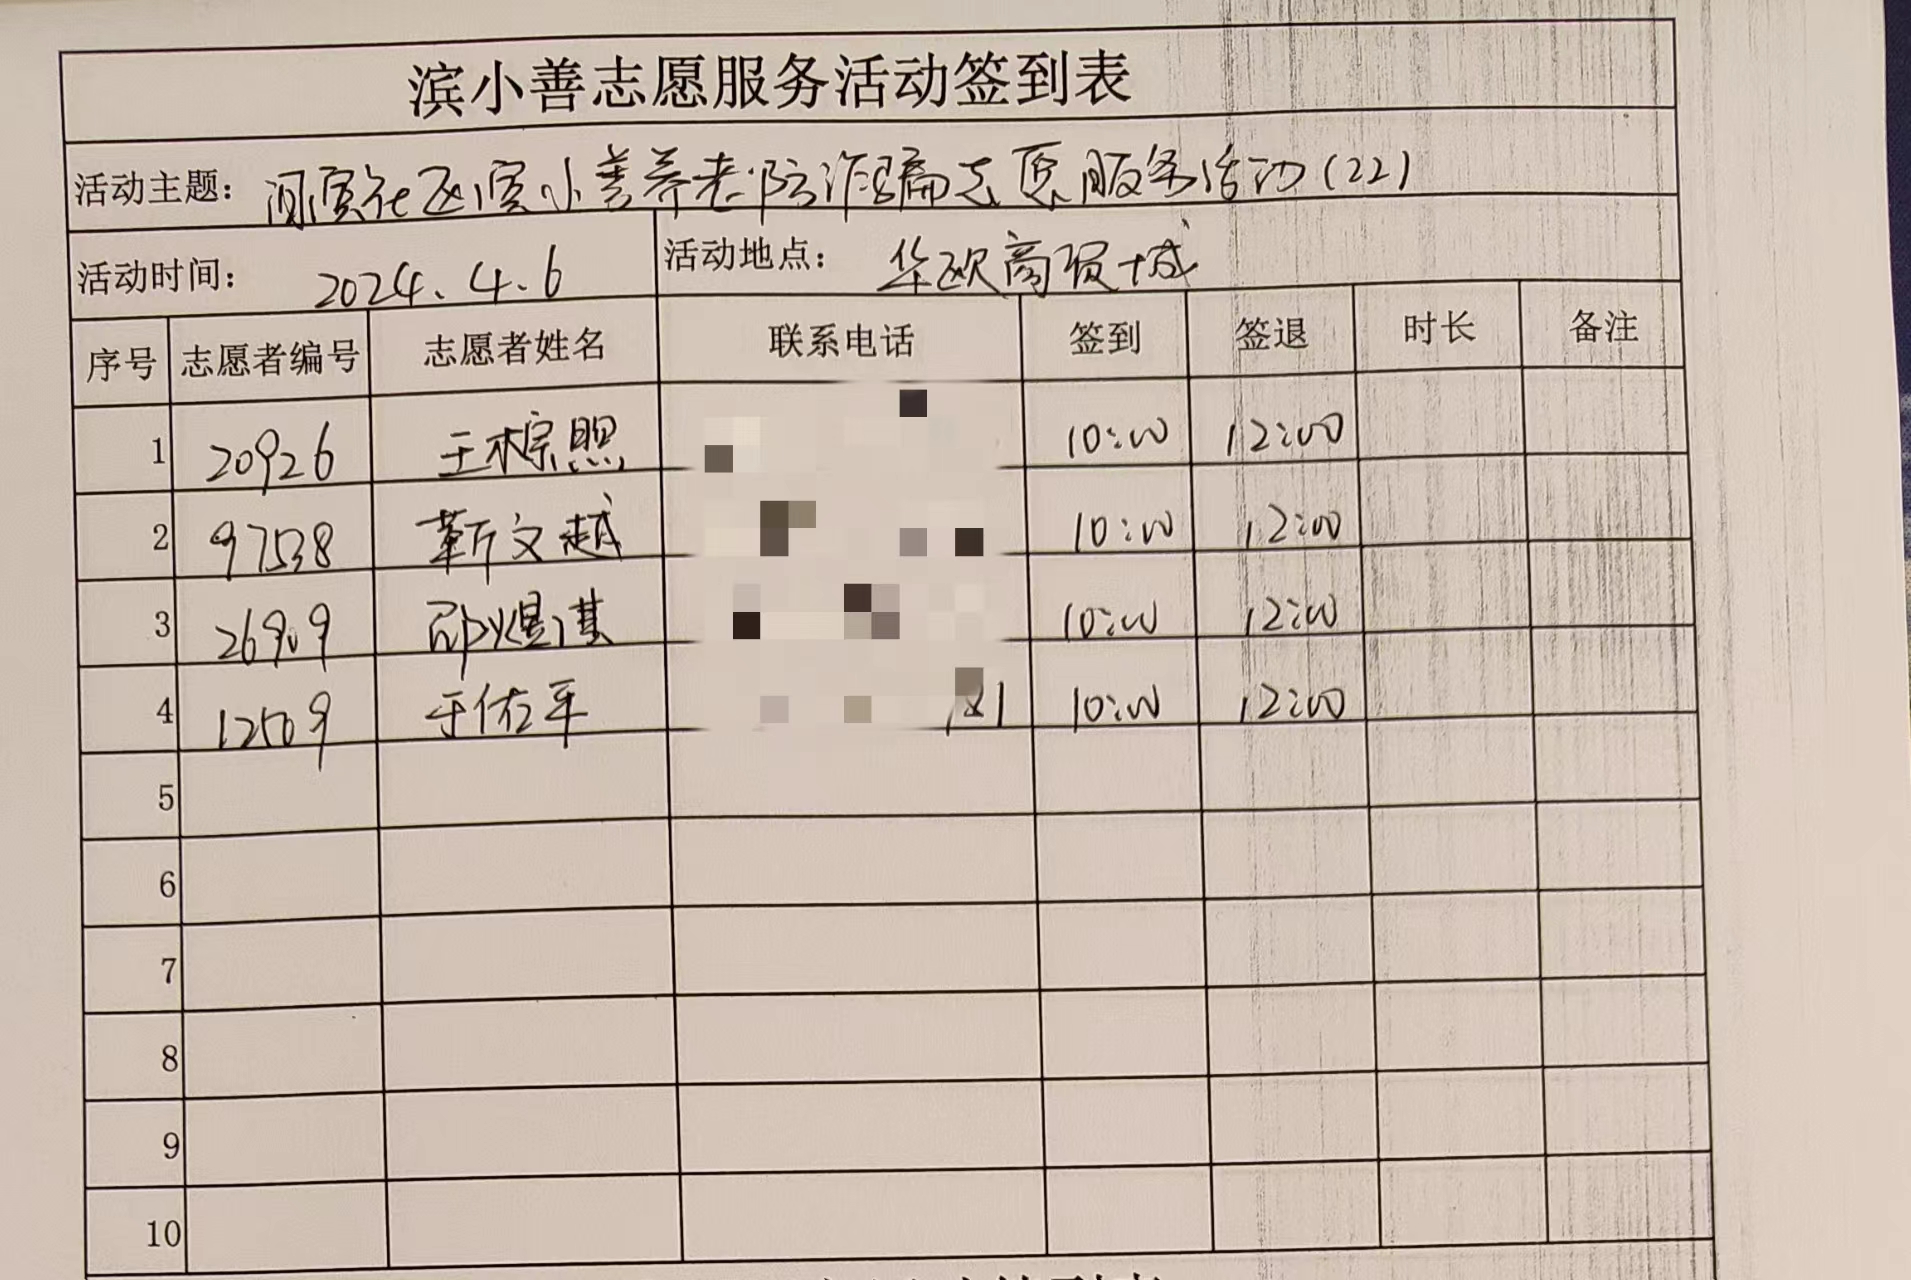 滨小善志愿服务活动签到表
活动主题：润滨社区滨小善养老防诈骗志愿服务活动(22)
活动时间： 2024.4.6 活动地点： 华欧商贸城
序号 志愿者编号 志愿者姓名 联系电话 签到 签退 时长 备注
1 20926 王棕照 10:00 12:00
2 97538 靳文越 10:00 12:00
3 26909 邵煜淇 10:00 12:00
4 12509 于佑平 181 10:00 12:00
5
6
7
8
9
10